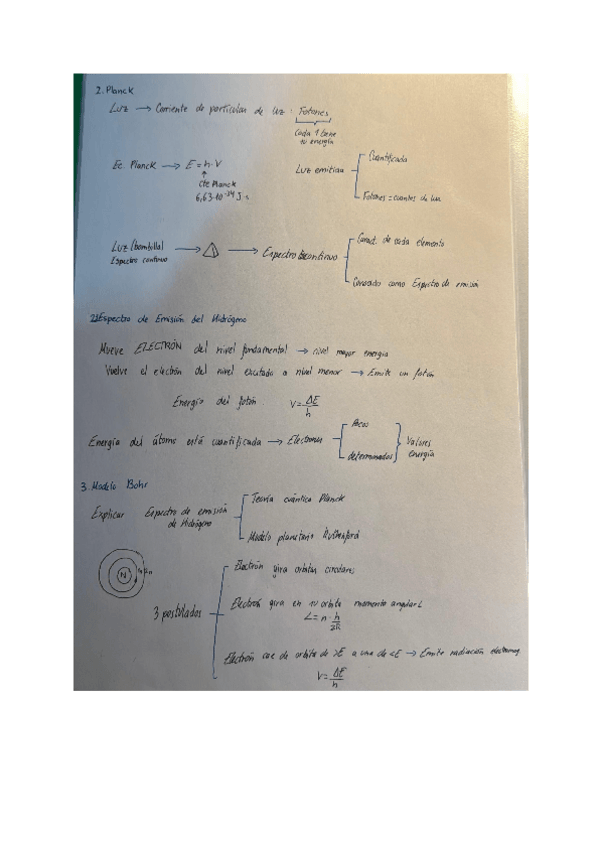 2. Planck
Luz → Corriente de partículas de luz: Fotones
Cada 1 tiene
su energía
Ec. Planck → E = h·V
Cte Planck
6,63·10⁻³⁴ J·s
Luz emitida
Cuantificada
Fotones = cuantos de luz
Luz (bombilla)
Espectro continuo
→ △ → Espectro discontinuo
Caract. de cada elemento
Conocidos como Espectro de emisión
2.1 Espectro de Emisión del Hidrógeno
Mueve ELECTRÓN del nivel fundamental → nivel mayor energía
Vuelve el electrón del nivel excitado a nivel menor → Emite un fotón
Energía del fotón. V = ΔE/h
Energía del átomo está cuantificada → Electrones
Pocos
determinados
Valores
energía
3. Modelo Bohr
Explicar Espectro de emisión
de Hidrógeno
Teoría cuántica Planck
Modelo planetario Rutherford
N
3 postulados
Electrón gira órbitas circulares
Electrón gira en su órbita momento angular L
L = n · h/2π
Electrón cae de órbita de >E a una de <E → Emite radiación electromag.
V = ΔE/h